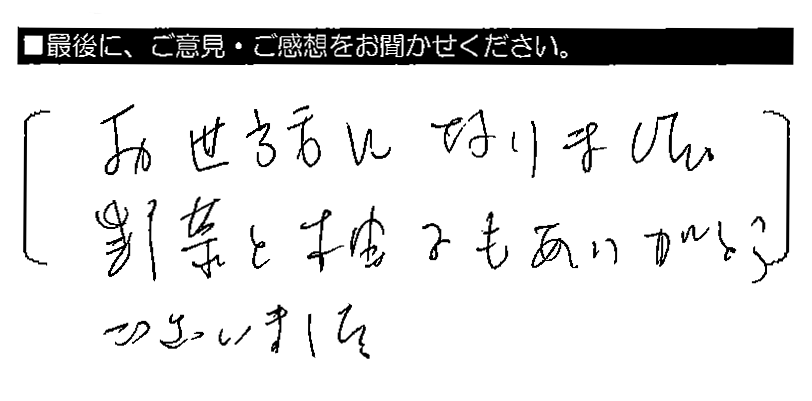 ■最後に、ご意見・ご感想をお聞かせください。
お世話になりました。
野菜と柚子もありがとう
ございました